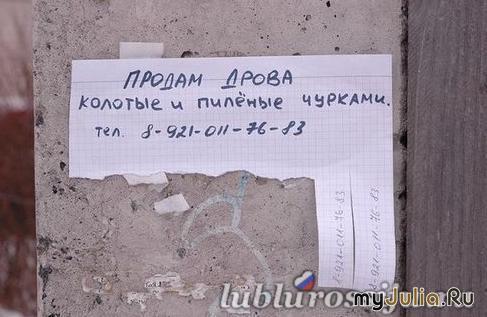 ПРОДАМ ДРОВА
КОЛОТЫЕ И ПИЛЁНЫЕ ЧУРКАМИ.
ТЕЛ. 8-921-011-76-83
8-921-011-76-83
8-921-011-76-83
lublurossij
myJulia.Ru